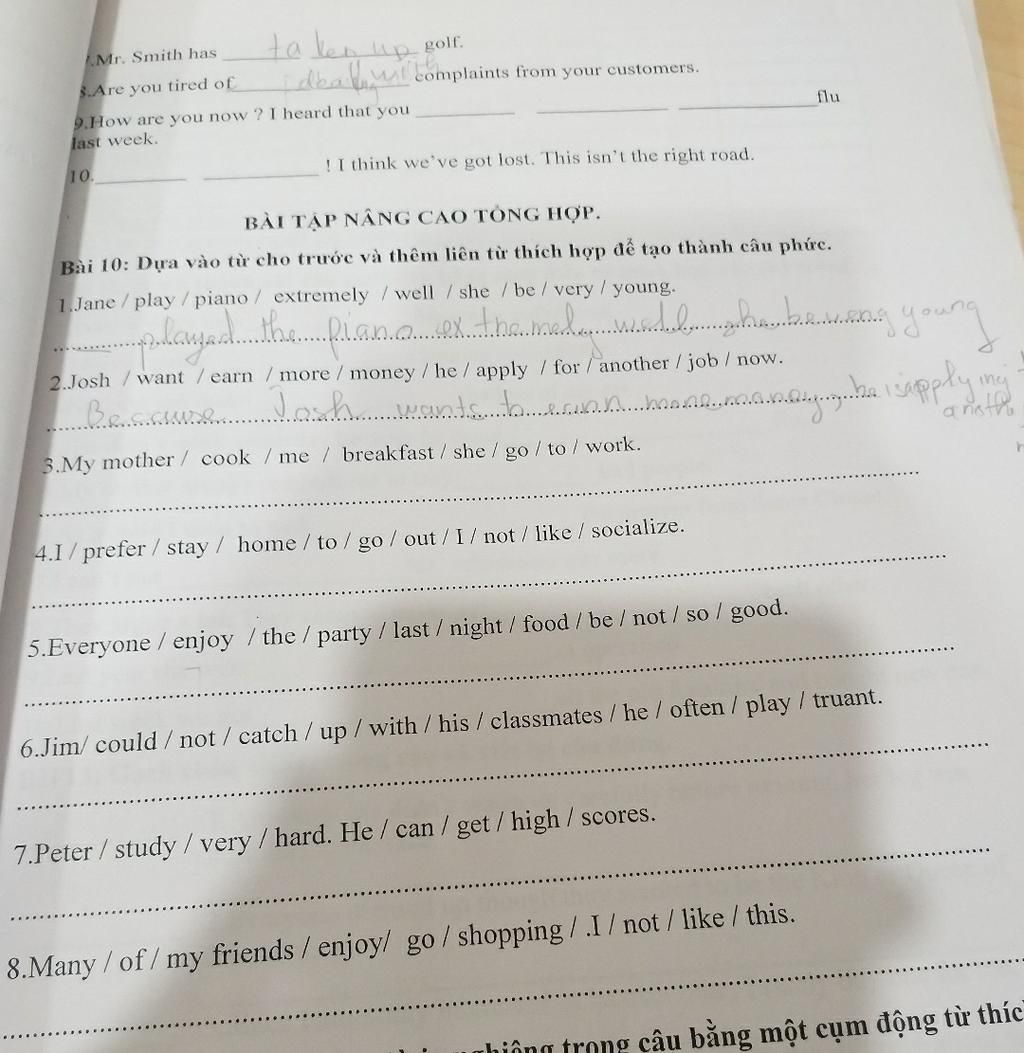 7.Mr. Smith has taken up golf.
8.Are you tired of complaints from your customers.
9.How are you now ? I heard that you ____ ____ ____ flu
last week.
10.____ ____ ! I think we've got lost. This isn't the right road.
BÀI TẬP NÂNG CAO TỔNG HỢP.
Bài 10: Dựa vào từ cho trước và thêm liên từ thích hợp để tạo thành câu phức.
1.Jane / play / piano / extremely / well / she / be / very / young.
played the piano well young
2.Josh / want / earn / more / money / he / apply / for / another / job / now.
Because Josh wants to more money, he is applying
3.My mother / cook / me / breakfast / she / go / to / work.
4.I / prefer / stay / home / to / go / out / I / not / like / socialize.
5.Everyone / enjoy / the / party / last / night / food / be / not / so / good.
6.Jim/ could / not / catch / up / with / his / classmates / he / often / play / truant.
7.Peter / study / very / hard. He / can / get / high / scores.
8.Many / of / my friends / enjoy/ go / shopping / .I / not / like / this.
trong câu bằng một cụm động từ